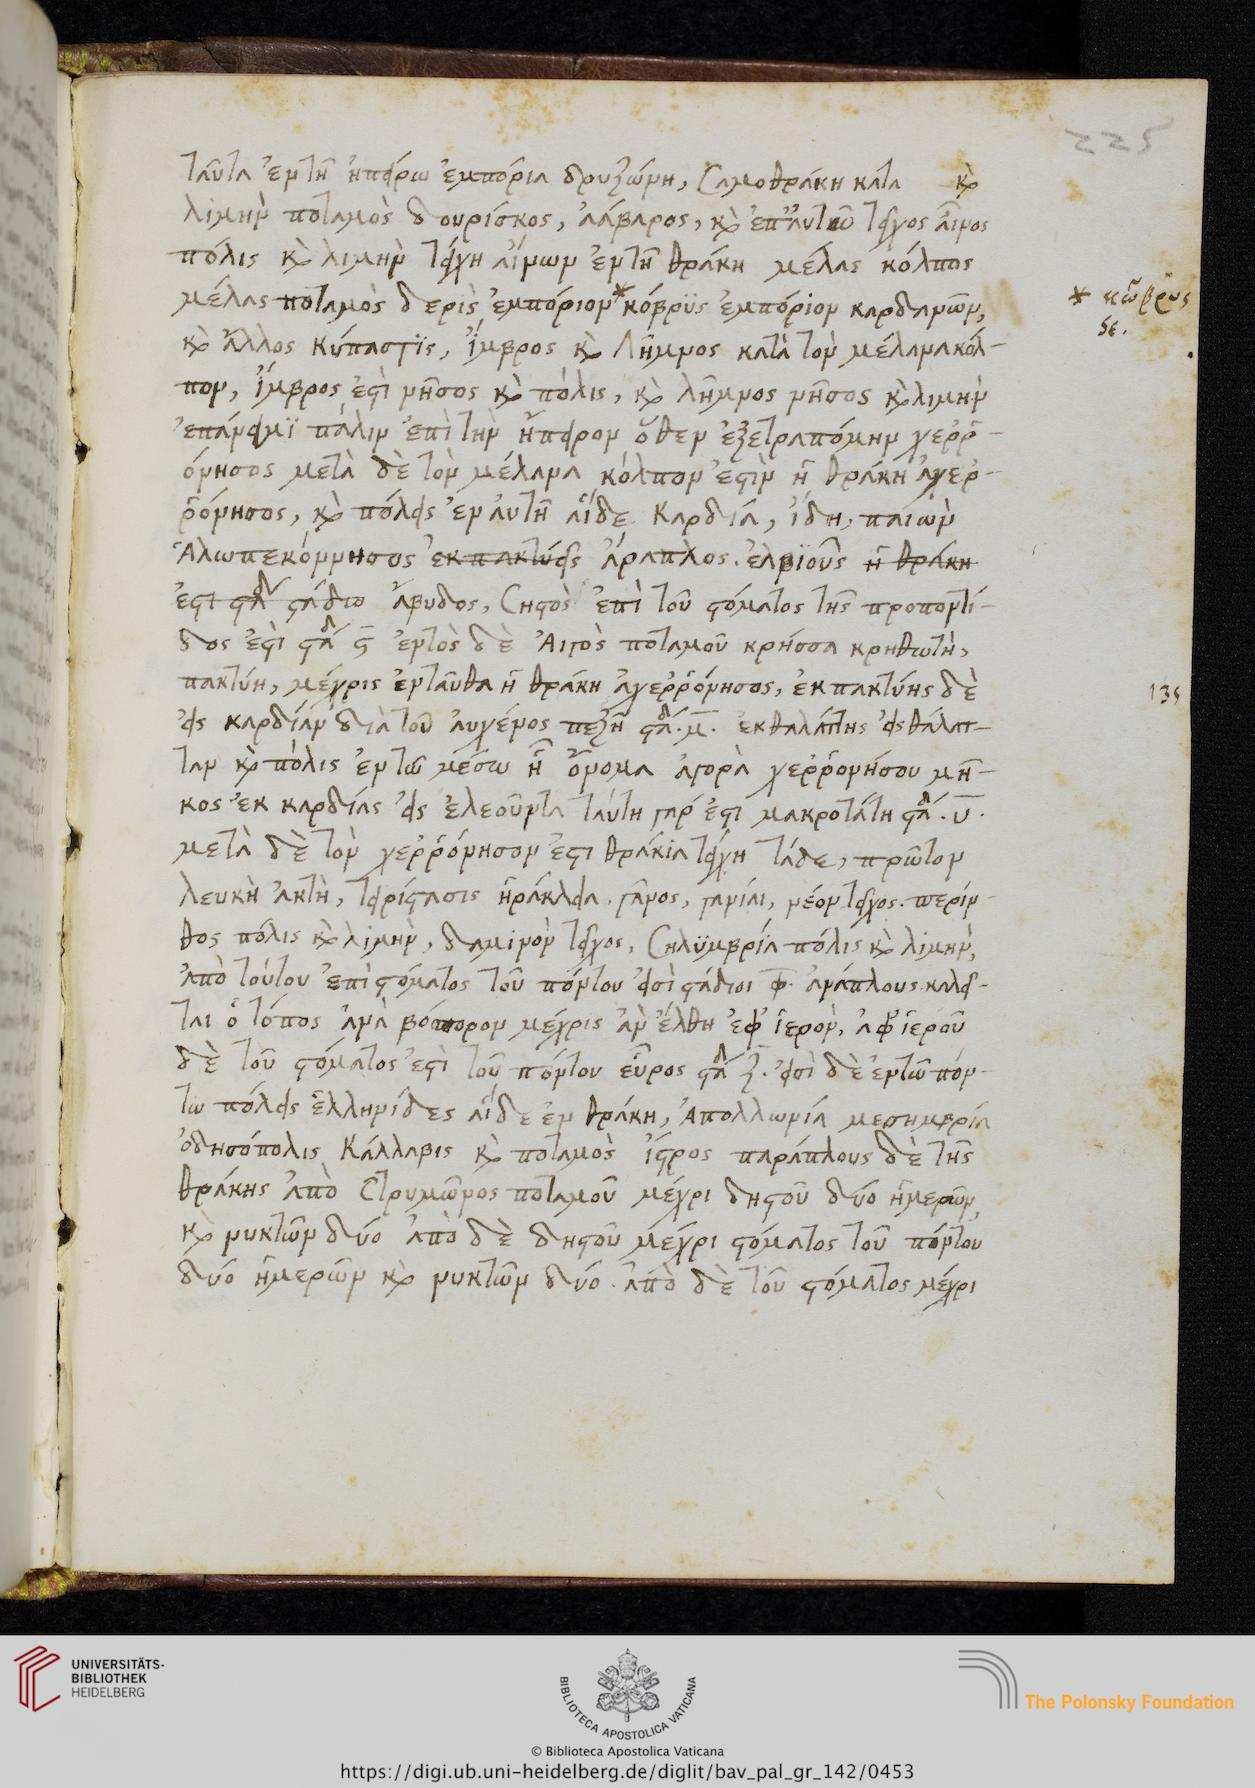 225
ταῦτα ἐν τῆ ἠπείρω ἐμπόρια δρυζώνη, Σαμοθράκη κατα καὶ
λιμὴν ποταμὸς δουρίσκος, ἀάβαρος, καὶ ἐπ' αὐτῶ τεῖχος αἶνος
πόλις καὶ λιμὴν τείχη αἴνων ἐν τῆ θράκη μέλας κόλπος
μέλας ποταμὸς δερὶς ἐμπόριον * κόβρϋς ἐμπόριον καρδανῶν,
καὶ ἄλλος κύπαστϊς, ἴμβρος καὶ Λῆμνος κατὰ τὸν μέλανα κόλ-
πον, ἴμβρος ἐστὶ νῆσος καὶ πόλις, καὶ λῆμνος νῆσος καὶ λιμὴν
ἐπάνειμϊ πάλιν ἐπὶ τὴν ἤπειρον ὅθεν ἐξετραπόμην χερρ-
όνησος μετὰ δὲ τὸν μέλανα κόλπον ἐστὶν ἡ θράκη ἀχερ-
ρόνησος, καὶ πόλεις ἐν αὐτῆ αἵδε Καρδία, ἴδη, παιὼν
Ἀλωπεκόννησος ἐκπακτύεις ἄραπλος. ἐλβϊοῦς ἡ θράκη
ἐστι στα στάδιο ἄβυδος, Σηστὸς ἐπὶ τοῦ στόματος τῆς προποντί-
δος ἐστὶ στα ϛ ἐντὸς δὲ Αἰγὸς ποταμοῦ κρήσσα κρηθωτὴ,
πακτύη, μέχρις ἐνταῦθα ἡ θράκη ἀχερρόνησος, ἐκ πακτύης δὲ
εἰς καρδίαν διὰ τοῦ αὐχένος πεζῆ στα. μ. ἐκ θαλάττης εἰς θάλατ-
ταν καὶ πόλις ἐν τῶ μέσω ἧ ὄνομα ἀγορὰ χερρονήσου μῆ-
κος ἐκ καρδίας εἰς ἐλεοῦντα ταύτη γαρ ἐστι μακροτάτη στα. υ.
μετὰ δὲ τὸν χερρόνησον ἐστι θράκια τείχη τάδε, πρῶτον
λευκὴ ἀκτὴ, τειρίστασις ἡράκλεια. γάνος, γανίαι, νέον τεῖχος. περίν-
θος πόλις καὶ λιμὴν, δαμινὸν τεῖχος, Σηλϋμβρία πόλις καὶ λιμὴν,
ἀπὸ τούτου ἐπὶ στόματος τοῦ πόντου εἰσὶ στάδιοι φ. ἀνάπλους. καλεῖ-
ται ὁ τόπος ἀνὰ βόσπορον μέχρις ἂν ἔλθη ἐφ' ἱερον, ἀφ' ἱεροῦ
δὲ τοῦ στόματος ἐστὶ τοῦ πόντου εὖρος στα ζ. εἰσὶ δὲ ἐν τῶ πόν-
τω πόλεις ἑλληνίδες αἵδε ἐν θράκη, Ἀπολλωνία μεσημβρία
ὀδησόπολις Κάλλαβις καὶ ποταμὸς ἴστρος παράπλους δὲ τῆς
θράκης ἀπὸ Στρυμῶνος ποταμοῦ μέχρι δηστοῦ δύο ἡμερῶν,
καὶ νυκτῶν δύο ἀπὸ δὲ δηστοῦ μέχρι στόματος τοῦ πόντου
δύο ἡμερῶν καὶ νυκτῶν δύο. ἀπὸ δὲ τοῦ στόματος μέχρι
* κῶβρυς
δε.
135
UNIVERSITÄTS-
BIBLIOTHEK
HEIDELBERG
BIBLIOTECA APOSTOLICA VATICANA
The Polonsky Foundation
© Biblioteca Apostolica Vaticana
https://digi.ub.uni-heidelberg.de/diglit/bav_pal_gr_142/0453